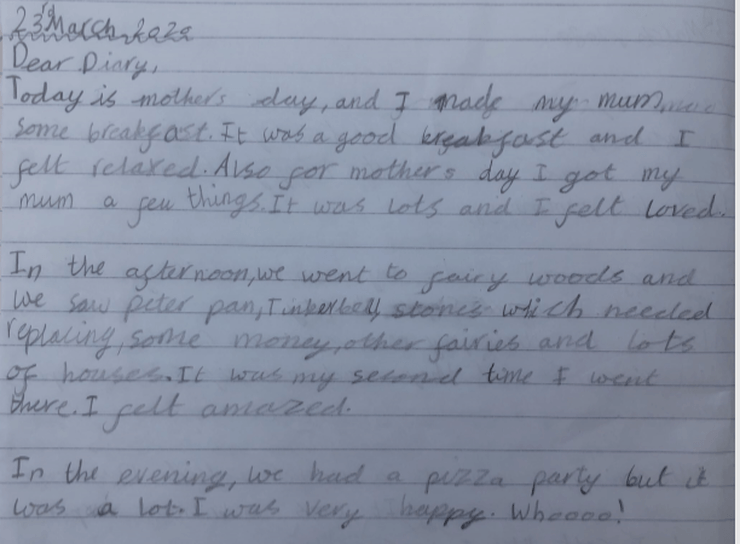 23rd March 2020
Dear Diary,
Today is mothers day, and I made my mum
some breakfast. It was a good breakfast and I
felt relaxed. Also for mothers day I got my
mum a few things. It was lots and I felt loved.
In the afternoon, we went to fairy woods and
we saw peter pan, Tinkerbell, stones which needed
replacing, some money, other fairies and lots
of houses. It was my second time I went
there. I felt amazed.
In the evening, we had a pizza party but it
was a lot. I was very happy. Whoooo!